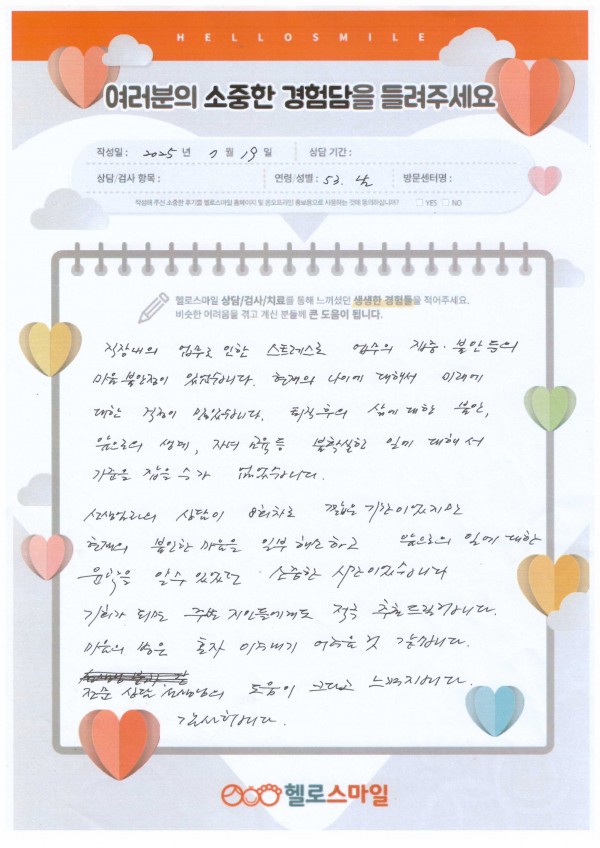 HELLOSMILE
여러분의 소중한 경험담을 들려주세요
작성일 : 2025 년 7 월 19 일 상담 기간 :
상담/검사 항목 : 연령/성별 : 53. 남 방문센터명 :
작성해 주신 소중한 후기를 헬로스마일 홈페이지 및 온오프라인 홍보용으로 사용하는 것에 동의하십니까? YES NO
헬로스마일 상담/검사/치료를 통해 느끼셨던 생생한 경험들을 적어주세요.
비슷한 어려움을 겪고 계신 분들께 큰 도움이 됩니다.
직장내의 업무로 인한 스트레스로 업무의 집중·불안 등의
마음 불안정이 있었습니다. 현재의 나이에 대해서 미래에
대한 걱정이 많았습니다. 퇴직후의 삶에 대한 불안,
앞으로의 생계, 자녀 교육 등 불확실한 일에 대해서
가늠을 잡을 수가 없었습니다.
선생님과의 상담이 8회차로 짧은 기간이었지만
현재의 불안한 마음을 일부 해소하고 앞으로의 일에 대한
윤곽을 알 수 있었던 소중한 시간이었습니다
기회가 되면 주변 지인들에게도 적극 추천드립니다.
마음의 병은 혼자 이겨내기 어려운 것 같습니다.
전문 상담 선생님의 도움이 크다고 느껴집니다.
감사합니다.
헬로스마일